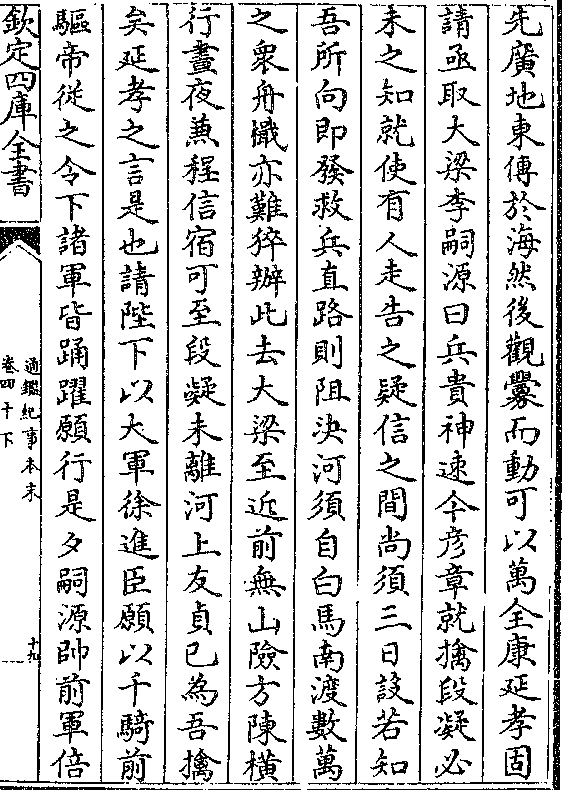 先廣地東傅於海然後觀釁而動可以萬全康延孝固
請亟取大梁李嗣源曰兵貴神速今彦章就擒段凝必
未之知就使有人走告之疑信之間尚須三日設若知
吾所向即發救兵直路則阻決河須自白馬南渡數萬
之衆舟檝亦難猝辦此去大梁至近前無山險方陳横
行晝夜兼程信宿可至段凝未離河上友貞已為吾擒
矣延孝之言是也請陛下以大軍徐進臣願以千騎前
驅帝從之令下諸軍皆踊躍願行是夕嗣源帥前軍倍
欽定四庫全書
通鑑紀事本末
卷四十下
十九